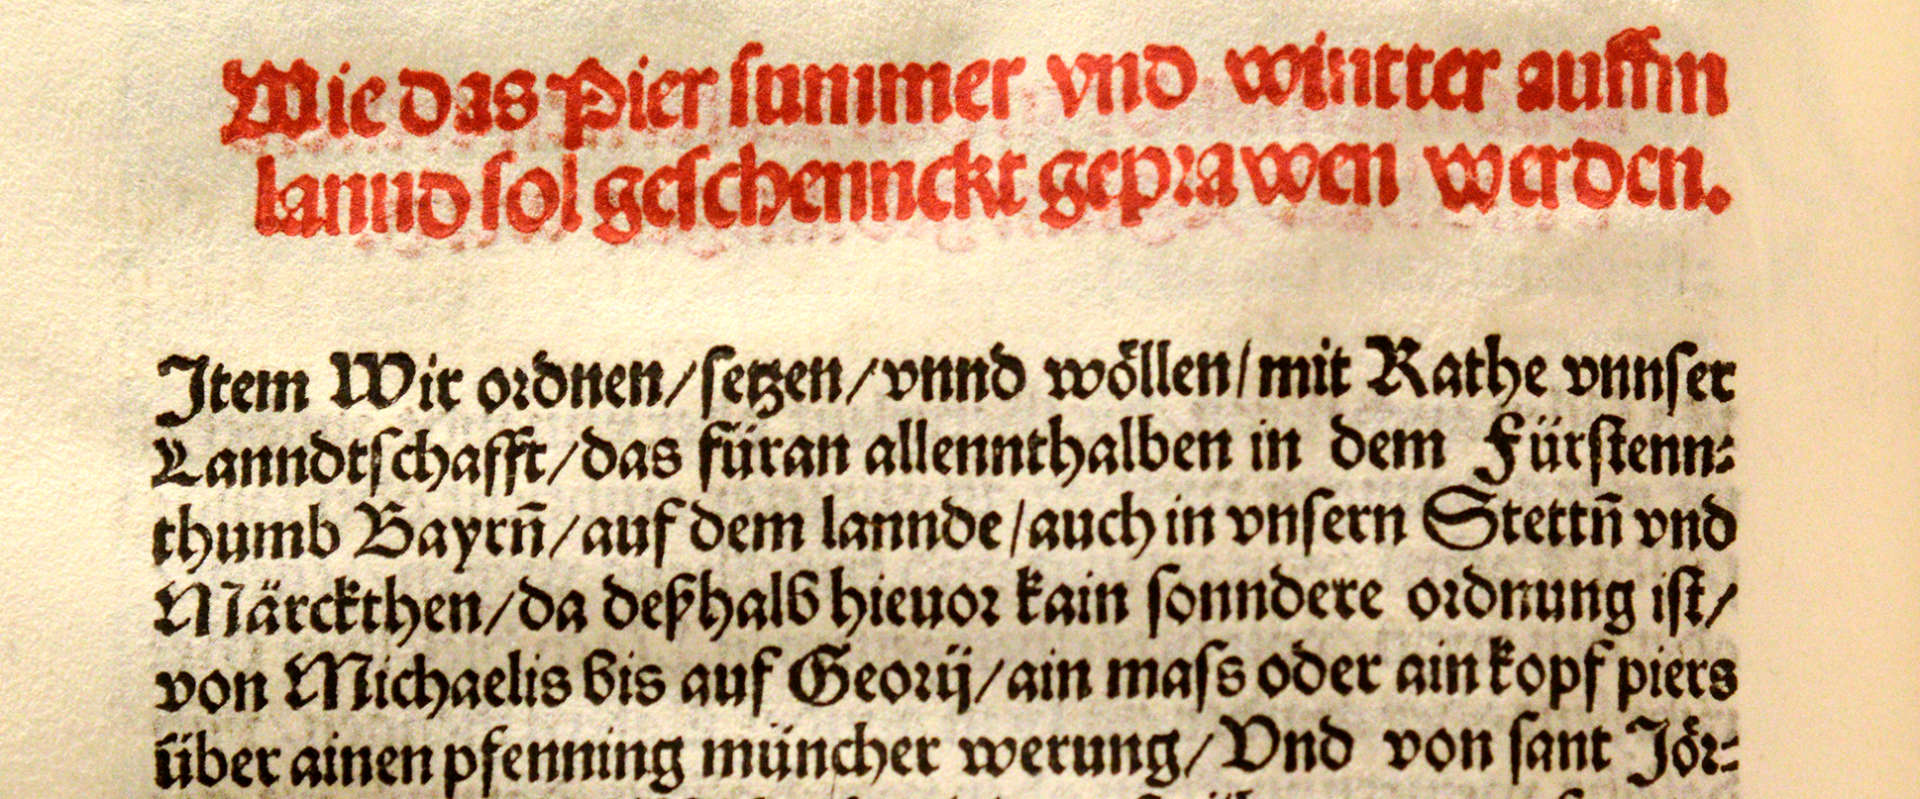 Wie das Pier summer vnd wintter auffm
lannd sol geschennckt geprawen werden.
Item Wir ordnen/setzen/vnnd wöllen/mit Rathe vnnser
Lanndtschafft/das füran allennthalben in dem Fürstenn⸗
thumb Bayrñ/auf dem lannde/auch in vnsern Stettñ vnd
Märckthen/da deßhalb hieuor kain sonndere ordnung ist/
von Michaelis bis auf Georij/ain mass oder ain kopf piers
über ainen pfenning müncher werung/Vnd von sant Jör⸗